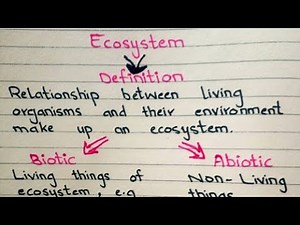 Ecosystem
Definition
Relationship between living
organisms and their environment
make up an ecosystem.
Biotic
Abiotic
Living things of
Non-Living
ecosystem, e.g
things